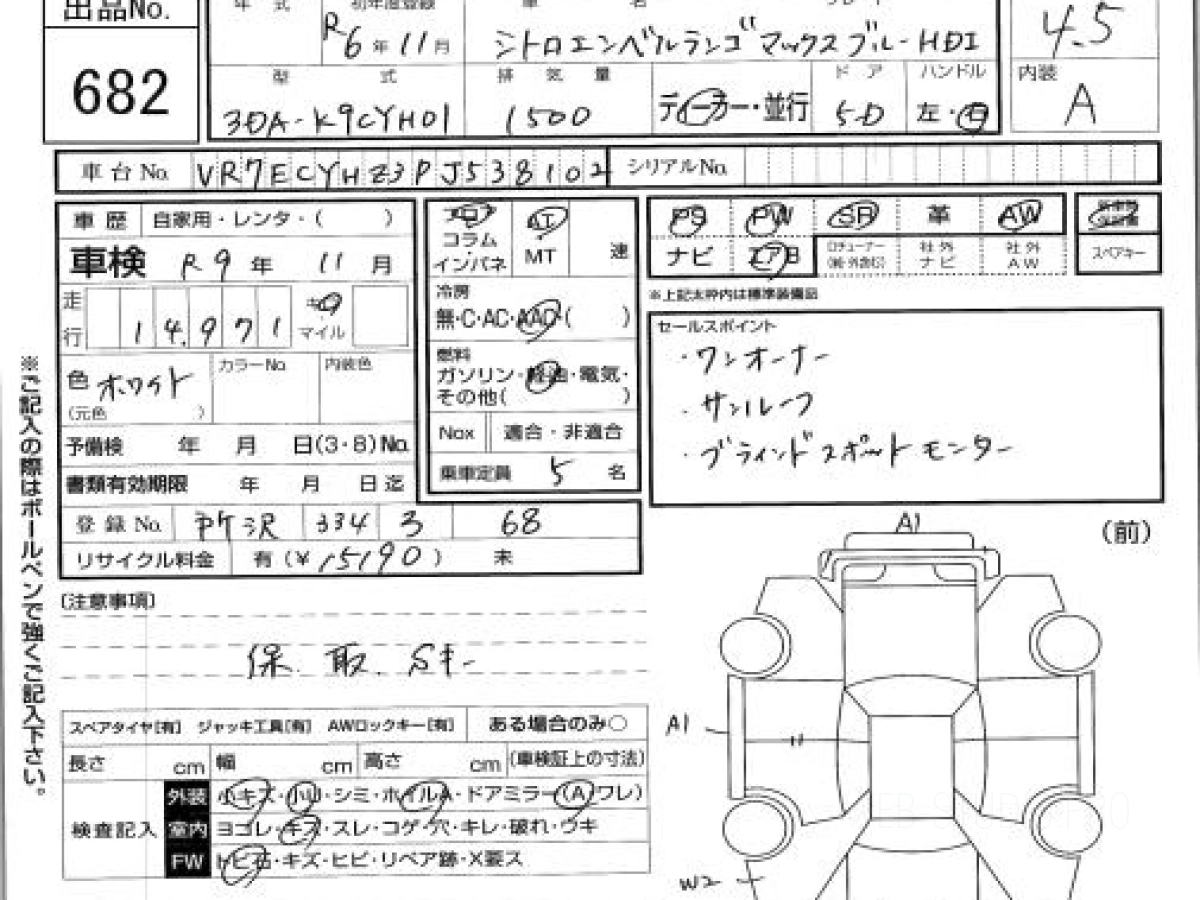 出品No.
682
年 式
初年度登録
R6年11月
車 名
グレード
シトロエンベルランゴ マックスブルーHDI
4.5
型 式
3DA-K9CYH01
排 気 量
1500
ディーラー・並行
ドア
5D
ハンドル
左・右
内装
A
車台No.
VR7ECYHZ3PJ538102
シリアルNo.
車 歴
自家用・レンタ・( )
車検 R9年 11月
走行
14,971
キロ
マイル
色 ホワイト
(元色 )
カラーNo.
内装色
予備検 年 月 日(3・8)No.
書類有効期限 年 月 日迄
登録No. 所沢 334 3 68
リサイクル料金 有(¥15190) 未
フロア
コラム
インパネ
AT
MT
速
冷房
無・C・AC・AAC・( )
燃料
ガソリン・軽油・電気・
その他( )
Nox 適合・非適合
乗車定員 5 名
PS PW SR 革 AW
ナビ エアB
社外ナビ
社外AW
スペアキー
※上記太枠内は標準装備品
セールスポイント
・ワンオーナー
・サンルーフ
・ブラインドスポットモニター
[注意事項]
保. 取. Sキー
スペアタイヤ[有] ジャッキ工具[有] AWロックキー[有] ある場合のみ○
長さ cm 幅 cm 高さ cm (車検証上の寸法)
検査記入
外装 小キズ・小U・シミ・ホイルA・ドアミラー(A)ワレ)
室内 ヨゴレ・キズ・スレ・コゲ・穴・キレ・破れ・ウキ
FW トビ石・キズ・ヒビ・リペア跡・X要ス
※ご記入の際はボールペンで強くご記入下さい。
(前)
A1
A1
W2